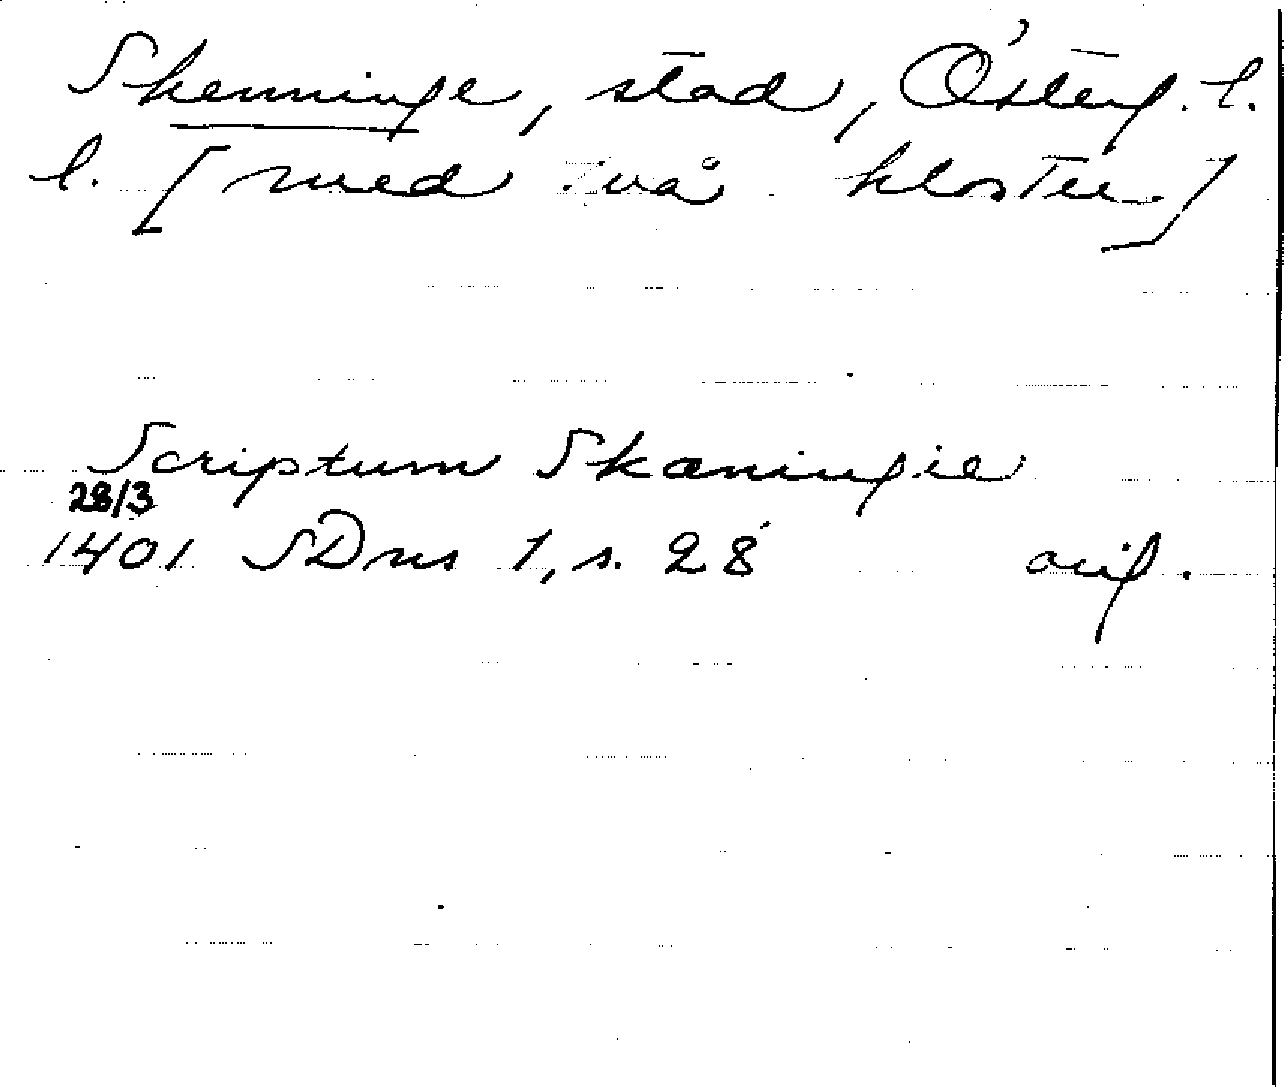 Skenninge, stad, Österg. l.
l. [med två kloster]
Scriptum Skæningie
28/3
1401 SDns 1, s. 28 orig.